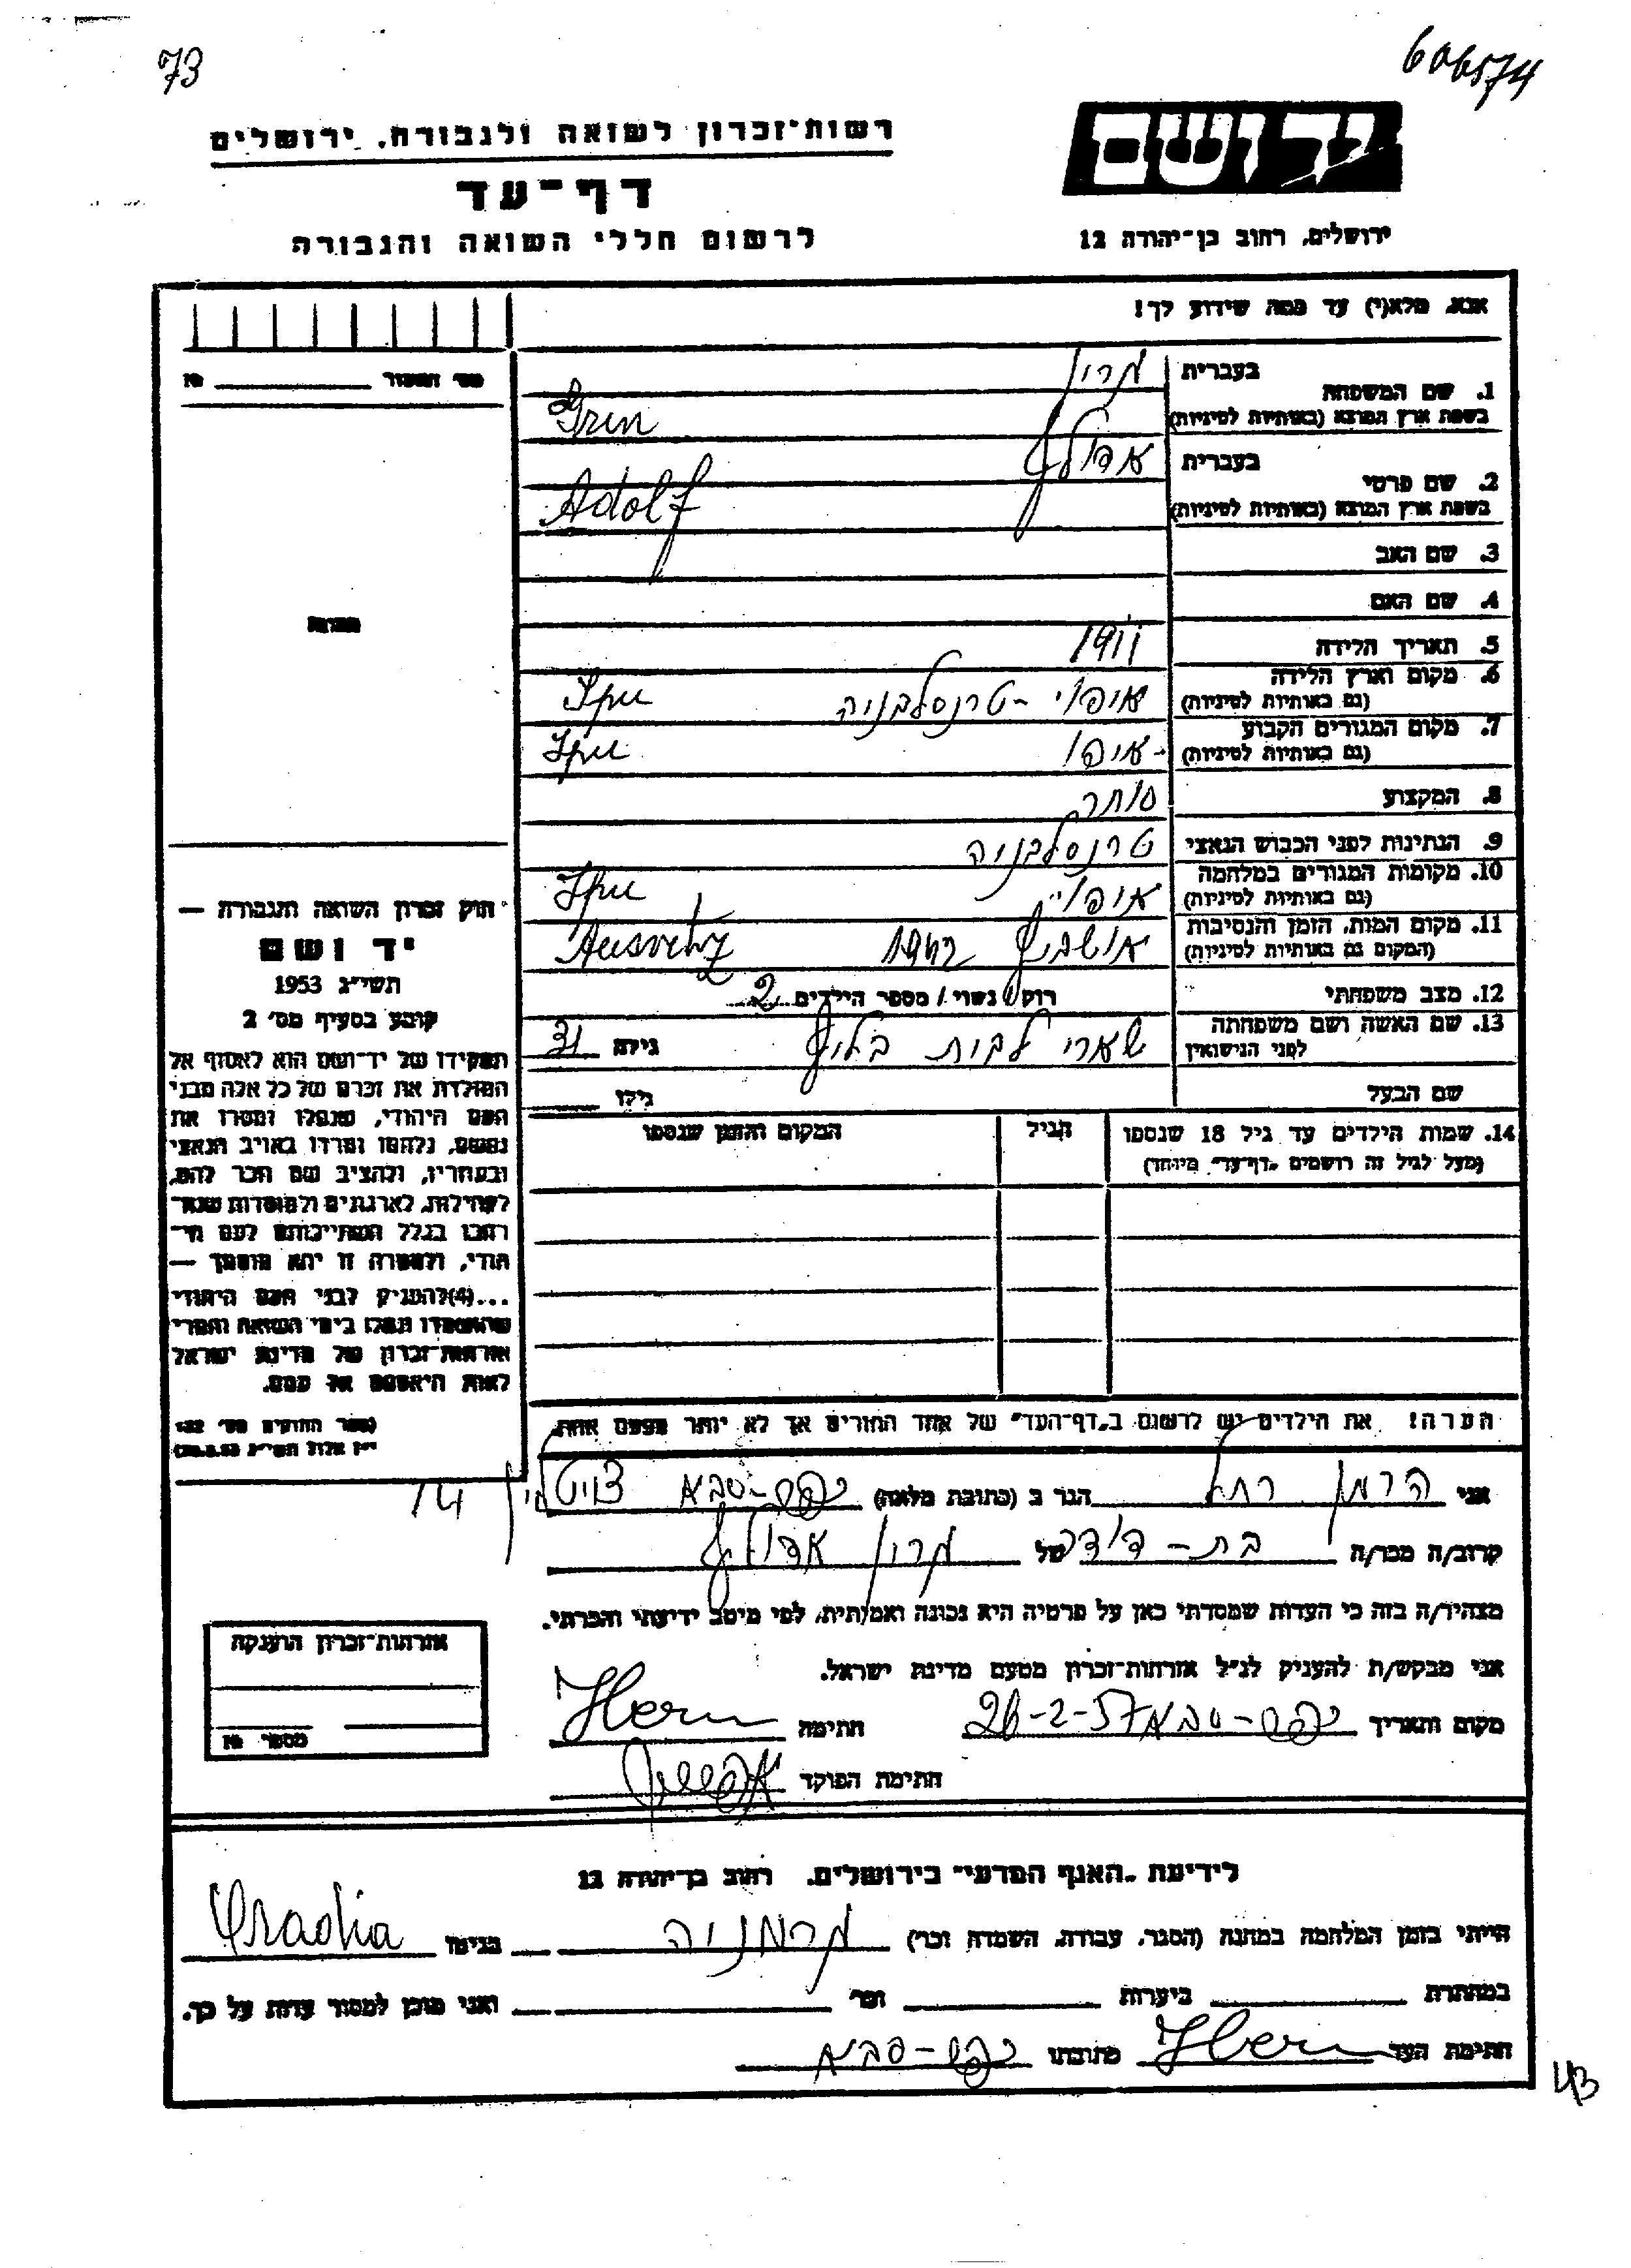 73
606574
רשות־זכרון לשואה ולגבורה, ירושלים
יד ושם
דף־עד
לרשום חללי השואה והגבורה
ירושלים, רחוב בן־יהודה 12
אנא, מלא(י) עד כמה שידוע לך!
מס' תשבור No
1. שם המשפחה
בעברית
בשפת ארץ המוצא (באותיות לטיניות)
Grin
2. שם פרטי
בעברית אדולף
בשפת ארץ המוצא (באותיות לטיניות)
Adolf
3. שם האב
4. שם האם
תמונה
5. תאריך הלידה 1911
6. מקום וארץ הלידה
(גם באותיות לטיניות)
טרנסלבניה Ipu
7. מקום המגורים הקבוע
(גם באותיות לטיניות)
איפו Ipu
8. המקצוע סוחר
9. הנתינות לפני הכבוש הנאצי טרנסלבניה
10. מקומות המגורים במלחמה
(גם באותיות לטיניות)
Ipu
11. מקום המות, הזמן והנסיבות
(המקום גם באותיות לטיניות)
אושביץ
12. מצב משפחתי רוק / נשוי / מספר הילדים 2
13. שם האשה ושם משפחתה
לפני הנישואין
שארי לבית גילה 31
שם הבעל גילו
14. שמות הילדים עד גיל 18 שנספו
(מעל לגיל זה רושמים "דף־עד" מיוחד)
הגיל
המקום והזמן שנספו
חוק זכרון השואה והגבורה —
יד ושם
תשי"ג 1953
קובע בסעיף מס' 2
תפקידו של יד־ושם הוא לאסוף אל
המולדת את זכרם של כל אלה מבני
העם היהודי, שנפלו ומסרו את
נפשם, נלחמו ומרדו באויב הנאצי
ובעוזריו, ולהציב שם וזכר להם,
לקהילות, לארגונים ולמוסדות שנח־
רבו בגלל השתייכותם לעם הי־
הודי, ולמטרה זו יהא מוסמך —
...(4)להעניק לבני העם היהודי
שהושמדו ונפלו בימי השואה והמרי
אזרחות־זכרון של מדינת ישראל
לאות היאספם אל עמם.
(ספר החוקים מס' 132
י"ז אלול תשי"ג 28.8.53)
הערה! את הילדים יש לרשום ב"דף־העד" של אחד ההורים אך לא יותר מפעם אחת.
אני הרמן רחל הגר ב (כתובת מלאה) כפר-סבא 14
קרוב/ה מכר/ה בת-דודה של אדולף
מצהיר/ה בזה כי העדות שמסרתי כאן על פרטיה היא נכונה ואמיתית, לפי מיטב ידיעתי והכרתי.
אני מבקש/ת להעניק לנ"ל אזרחות־זכרון מטעם מדינת ישראל.
מקום ותאריך כפר-סבא 26-2-57 חתימה
חתימת הפוקד
אזרחות־זכרון הוענקה
מספר No
לידיעת "האגף המדעי" בירושלים, רחוב בן־יהודה 12
הייתי בזמן המלחמה במחנה (הסגר, עבודה, השמדה וכו') גרמניה בגיטו Oradia
במחתרת ביערות וכו' ואני מוכן למסור עדות על כך.
חתימת העד כתובתו כפר-סבא
43